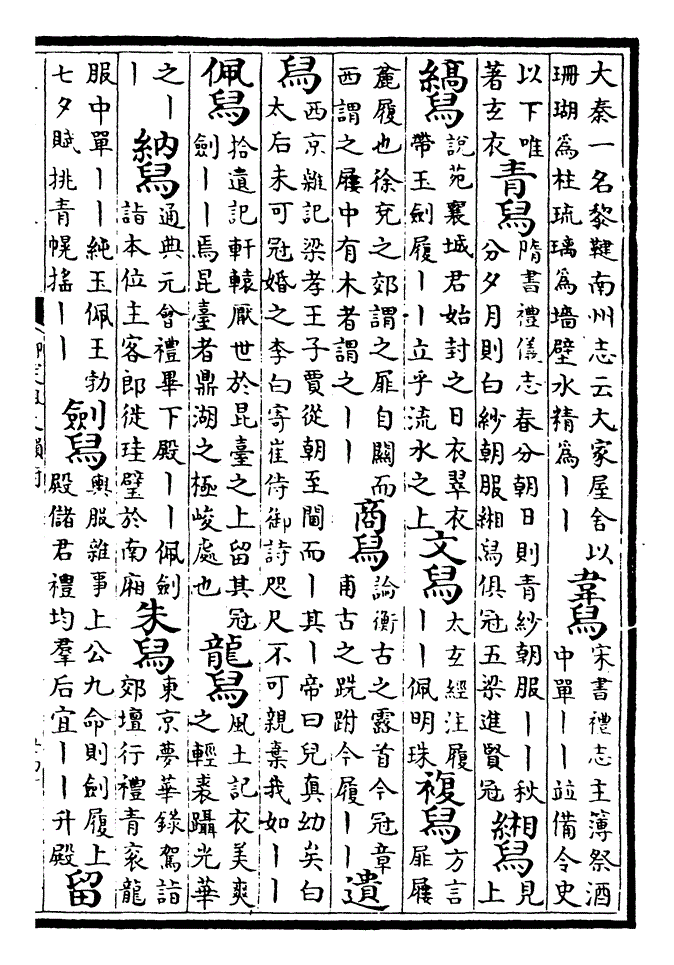 大秦一名黎鞬南州志云大家屋舍以
珊瑚為柱琉璃為墻壁水精為丨丨
韋舄
宋書禮志主簿祭酒
中單丨丨竝備令史
以下唯
著玄衣
青舄
隋書禮儀志春分朝日則青紗朝服丨丨秋
分夕月則白紗朝服緗舄俱冠五梁進賢冠
緗舄
見
上
縞舄
說苑襄城君始封之日衣翠衣
帶玉劍履丨丨立乎流水之上
文舄
太玄經注履
丨丨佩明珠
複舄
方言
扉屨
麄履也徐兗之郊謂之扉自關而
西謂之屨中有木者謂之丨丨
商舄
論衡古之露首今冠章
甫古之跣跗今履丨丨
遺
舄
西京雜記梁孝王子賈從朝至閫而丨其丨帝曰兒真幼矣白
太后未可冠婚之李白寄崔侍御詩咫尺不可親棄我如丨丨
佩舄
拾遺記軒轅厭世於昆臺之上留其冠
劍丨丨焉昆臺者鼎湖之極峻處也
龍舄
風土記衣美爽
之輕裘躡光華
之丨
丨
納舄
通典元會禮畢下殿丨丨佩劍
詣本位主客郎徙珪璧於南廂
朱舄
東京夢華錄駕詣
郊壇行禮青衮龍
服中單丨丨純玉佩王勃
七夕賦挑青幌搖丨丨
劍舄
輿服雜事上公九命則劍履上
殿儲君禮均羣后宜丨丨升殿
留